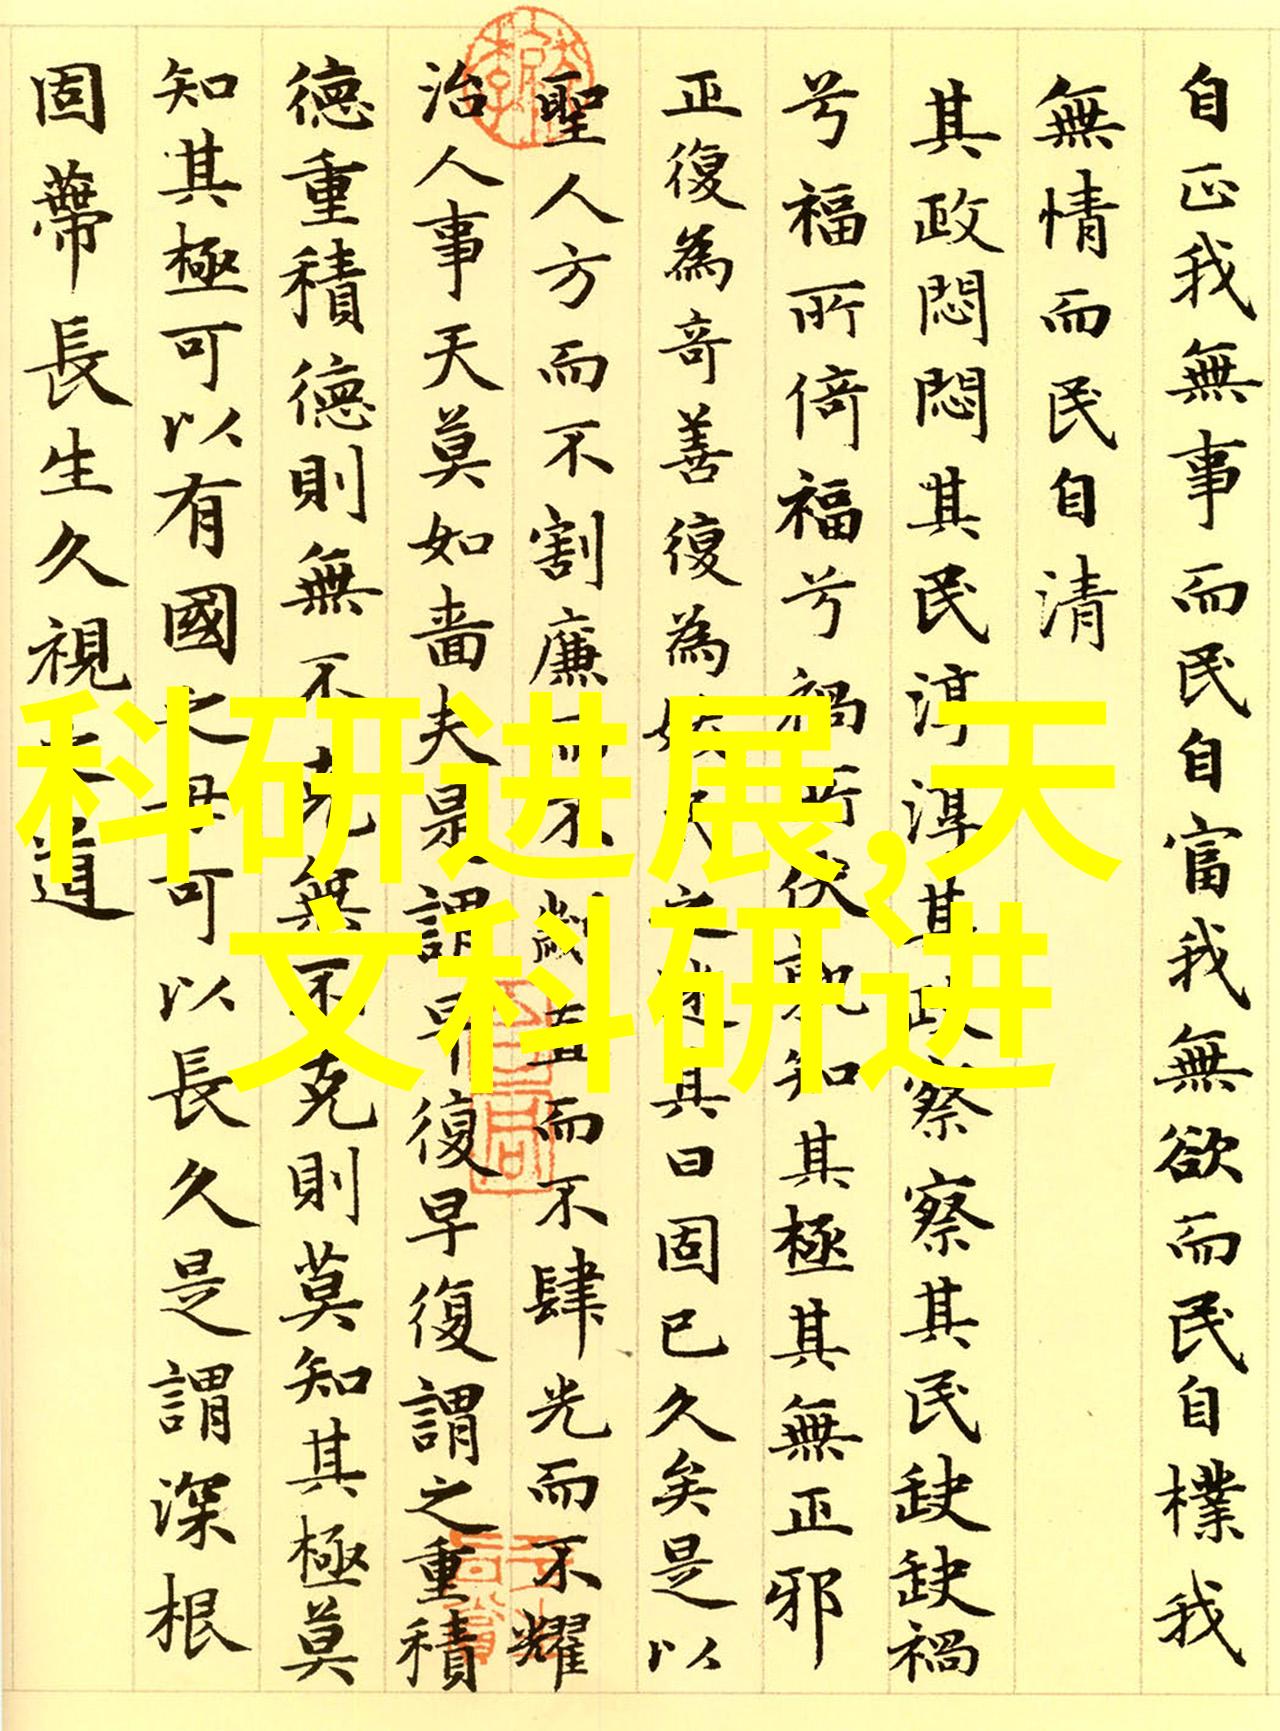 自正我無事而民自富我無欲而民自樸我
無情而民自清
其政悶悶其民淳淳其政察察其民缺缺禍
兮福所倚福兮禍所伏孰知其極其無正邪
正復為奇善復為妖人之迷其日固已久矣是以
聖人方而不割廉而不劌直而不肆光而不耀
治人事天莫如嗇夫是謂早復早復謂之重積
德重積德則無不克無不克則莫知其極莫
知其極可以有國之母可以長久是謂深根
固蔕長生久視之道
科研进展,天
文科研进